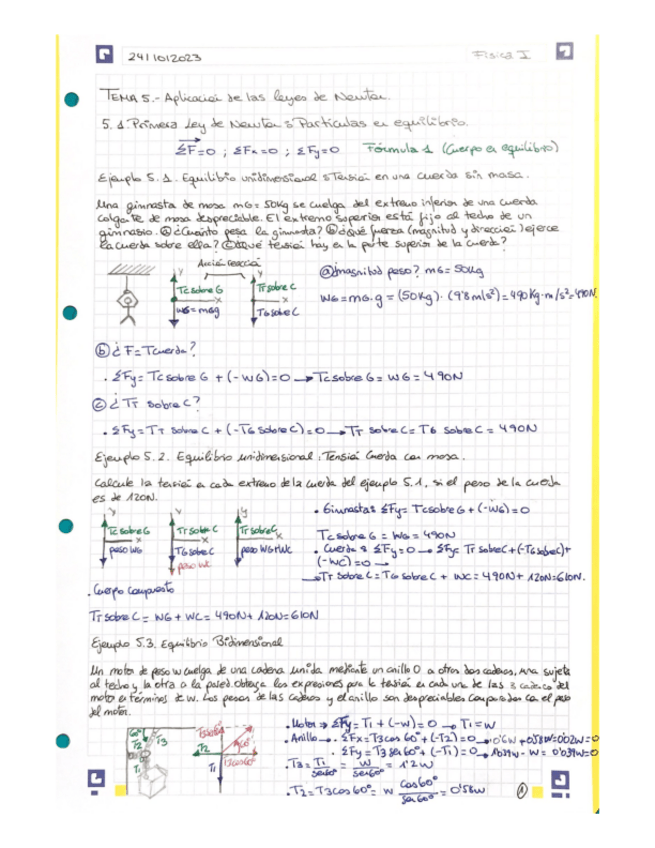 24/10/2023 Física I
TEMA 5.- Aplicación de las leyes de Newton.
5.1. Primera Ley de Newton: Partículas en equilibrio.
ΣF=0 ; ΣFx=0 ; ΣFy=0 Fórmula 1 (Cuerpo en equilibrio)
Ejemplo 5.1. Equilibrio unidimensional: Tensión en una cuerda sin masa.
Una gimnasta de masa mG= 50kg se cuelga del extremo inferior de una cuerda
colgante de masa despreciable. El extremo superior está fijo al techo de un
gimnasio. ⓐ ¿Cuánto pesa la gimnasta? ⓑ ¿Qué fuerza (magnitud y dirección) ejerce
la cuerda sobre ella? ⓒ ¿Qué tensión hay en la parte superior de la cuerda?
Acción reacción
y
y
Tc sobre G
x
WG=mGg
Tr sobre C
x
TG sobre C
ⓐ ¿magnitud peso? mG= 50kg
WG=mG.g = (50Kg).(9'8m/s²)=490Kg.m/s²=490N.
ⓑ ¿F=Tcuerda?
. ΣFy= Tc sobre G + (-WG)=0 → Tc sobre G= WG= 490N
ⓒ ¿Tr sobre C?
. ΣFy= Tr sobre C + (-TG sobre C)=0 → Tr sobre C= TG sobre C = 490N
Ejemplo 5.2. Equilibrio unidimensional: Tensión Cuerda con masa.
Calcule la tensión en cada extremo de la cuerda del ejemplo 5.1, si el peso de la cuerda
es de 120N.
y
y
y
Tc sobre G
x
peso WG
Tr sobre C
x
TG sobre C
peso WC
Tr sobre C
x
peso WG+WC
. Gimnasta: ΣFy= Tc sobre G + (-WG)=0
Tc sobre G = WG= 490N
. Cuerda: ΣFy=0 → ΣFy= Tr sobre C+(-TG sobre C)+
(-WC)=0 →
→ Tr sobre C= TG sobre C + WC = 490N + 120N=610N.
. Cuerpo Compuesto
Tr sobre C= WG + WC= 490N+ 120N=610N
Ejemplo 5.3. Equilibrio Bidimensional
Un motor de peso w cuelga de una cadena unida mediante un anillo O a otras dos cadenas, una sujeta
al techo y la otra a la pared. Obtenga las expresiones para la tensión en cada una de las 3 cadenas del
motor en términos de w. Los pesos de las cadenas y el anillo son despreciables comparados con el peso
del motor.
60°
T3
T2
T1
T2
T1
60°
T3cos60°
. Motor → ΣFy= T1 + (-w)=0 → T1=w
. Anillo → ΣFx= T3cos 60°+(-T2)=0 → 0'6w + 0'58w=0'02w=0
. ΣFy= T3sen60°+ (-T1)=0 → 1'039w - w = 0'039w=0
. T3= T1/sen60° = w/sen60° = 1'2w
. T2= T3cos60°= w cos60°/sen60° = 0'58w
①